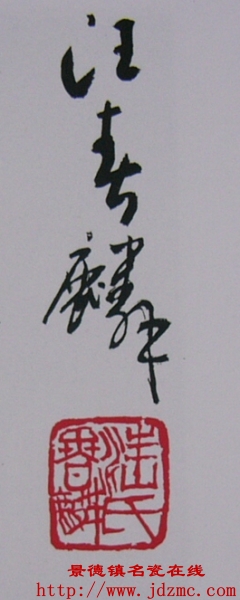 汪春麟
汪氏
春麟
景德镇名瓷在线
http://www.jdzmc.com